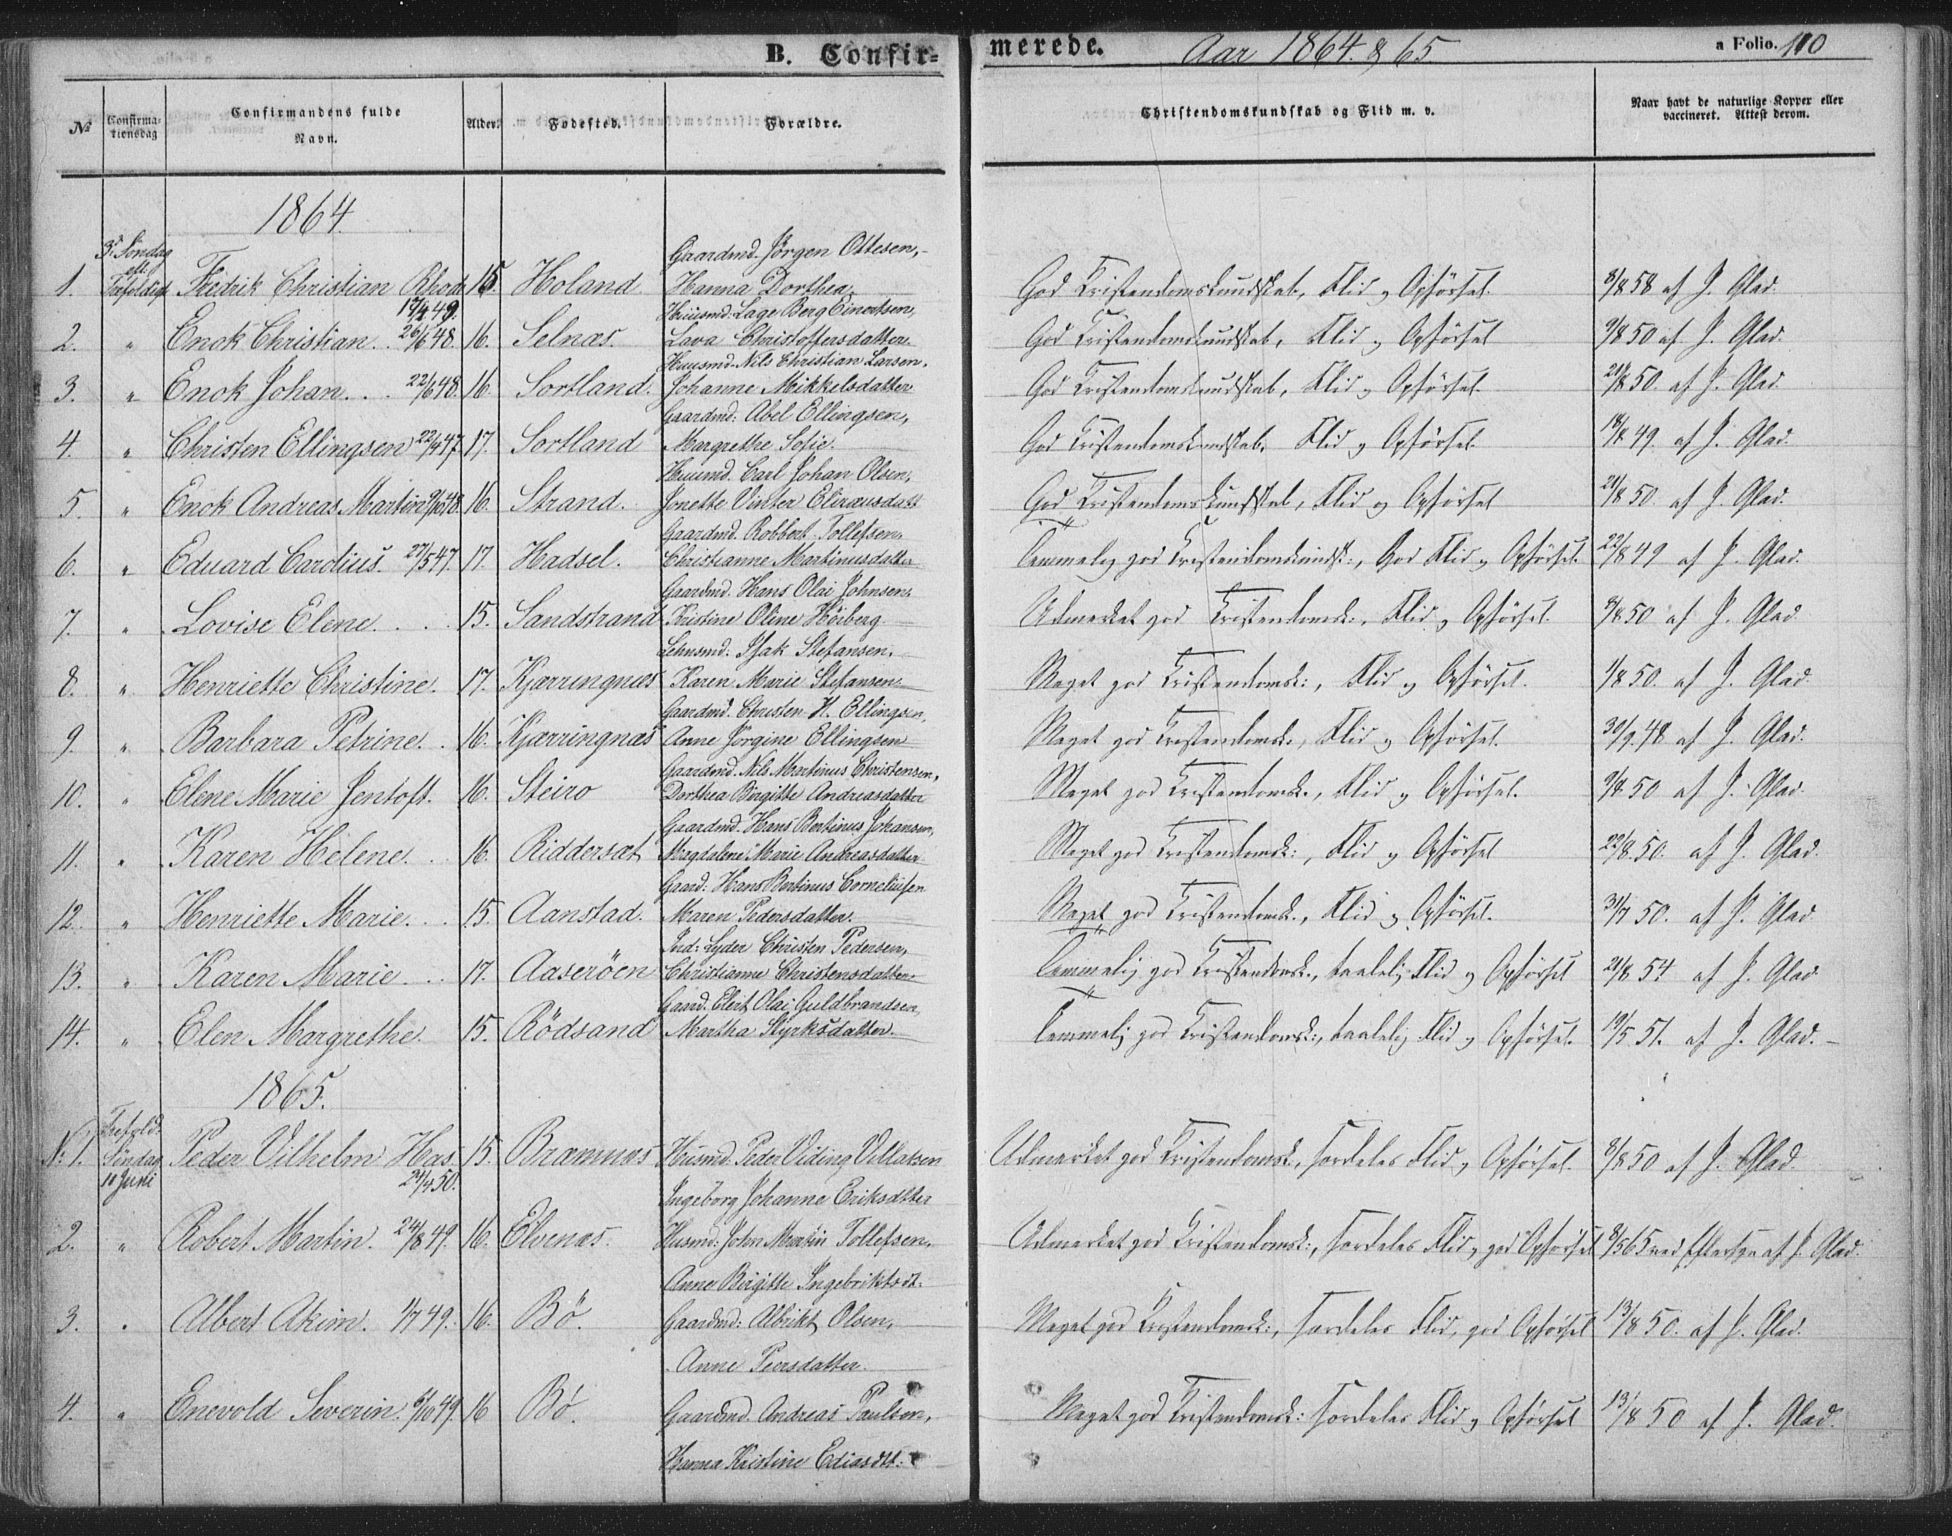 B. Confir=
merede. Aar 1864. & 65. a Folio. 110
No
Confirma-
tionsdag
Confirmandens fulde
Navn.
Alder.
Fødested.
Forældre.
Christendomskundskab og Flid m. v.
Naar havt de naturlige Kopper eller
vaccineret. Attest derom.
1864.
3. Søndag
eft.
Gaardmd. Jörgen Ottesen,
1. Trefoldigh. Fredrik Christian 15. Holand Hanna Dorthea, God Kristendomskundskab, Flid og Opförsel. 8/8 58 af J. Glad.
17/4 49.
Huusmd. Lage Berg Einertsen,
2. " Enok Christian. . 26/6 48. 16. Selnæs. Lava Christoffersdatter. God Kristendomskundskab, Flid og Opförsel 9/8 50 af J. Glad.
Huusmd. Nils Christian Larsen.
3. " Enok Johan. . . 22/6 48. 16. Sortland. Johanne Mikkelsdatter God Kristendomskundskab, Flid og Opförsel. 21/8 50. af J. Glad.
Gaardmd. Abel Ellingsen,
4. " Christen Ellingsen 22/4 47. 17. Sortland Margrethe Sofie. God Kristendomskundskab, Flid og Opförsel. 18/8 49. af J. Glad.
Huusmd. Carl Johan Olsen,
5. " Enok Andreas Martin 9/10 48. 16. Strand. Jonette Vinter God Kristendomskundskab, Flid og Opförsel 21/8 50. af J. Glad.
Gaardmd. Robbert Tollefsen,
6. " Eduard Cardius. 27/5 47. 17. Hadsel. Christianne Martinusdatter Temmelig god Kristendomskundsk:, God Flid og Opförsel. 22/8 49 af J. Glad.
Gaardmd. Hans Olai Johnsen,
7. " Lovise Elene. . . . 15. Sandstrand Kristine Oline Höiberg. Udmerket god Kristendomsk:, Flid og Opförsel. 9/8 50 af J. Glad
Lehnsmd: Isak Stefansen,
8. " Henriette Christine. 17. Kjærringnæs Karen Marie Stefansen Meget god Kristendomsk:, Flid og Opförsel. 1/8 50. af J. Glad.
Gaardmd. Christen H. Ellingsen,
9. " Barbara Petrine. . 16. Kjærringnæs Anne Jörgine Ellingsen Meget god Kristendomsk:, Flid og Opförsel. 30/9. 48 af J. Glad.
Gaardmd. Nils Martinus Christensen,
10. " Elene Marie Jentoft. 16. Steiro Dorthea Birgitte Andreasdatter Meget god Kristendomsk:, Flid og Opförsel. 9/8 50 af J. Glad.
Gaardmd. Hans Bertinus Johansen,
11. " Karen Helene. . 16. Riddersæt Magdalene Marie Andreasdatter Meget god Kristendomsk:, Flid og Opförsel 22/8. 50. af J. Glad.
Gaard: Hans Bertinus Corneliusen
12. " Henriette Marie. . . 15. Aanstad. Maren Pedersdatter. Meget god Kristendomsk:, Flid og Opförsel. 31/7 50. af J. Glad.
Lyder Christen Pedersen,
13. " Karen Marie. . . . 17. Aaseröen Christianne Christensdatter. Temmelig god Kristendomsk:, taalelig Flid og Opförsel 21/8 54 af J. Glad
Gaard. Elert Olai Guldbrandsen,
14. " Elen Margrethe. 15. Rödsand Martha Styrksdatter. Temmelig god Kristendomsk:, taalelig Flid og Opförsel. 19/5 51. af J. Glad. -
1865.
Trefold:
No 1. Söndag Peder Vilhelm 15. Bræmnæs Husmd. Peder Viding Udmerket god Kristendomsk:, særdeles Flid og Opförsel. 8/8 50 af J. Glad.
11 Juni 29/4 50.
Ingeborg Johanna Eriksdtter
2. " Robert Martin. 24/8 49. 16. Elvenæs. Husmd: John Martin Tollefsen, Udmerket god Kristendomsk:, særdeles Flid og god Opförsel 8/5 65 ved af J. Glad.
Anne Birgitte
3. " Albert Akim. 1/7 49. 16. Bö. Gaardmd: Albrikt Olsen, Meget god Kristendomsk:, særdeles Flid, god Opförsel 13/8 50. af J. Glad.
Anne Peersdatter.
4. " Enevold Severin. 6/10 49. 16 Bö. Gaardmd. Andreas Paulsen, Meget god Kristendomsk: særdeles Flid og Opförsel 13/8 50 af J. Glad.
Hanna Kristine